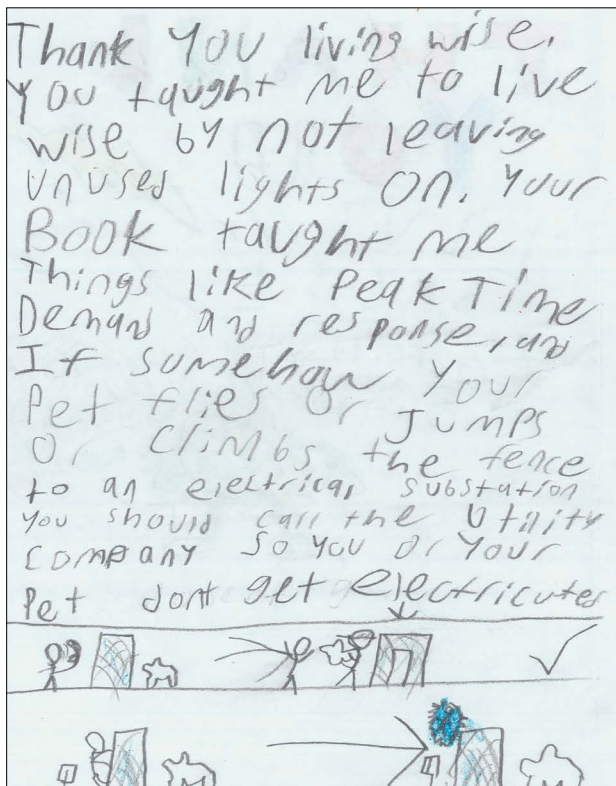 Thank You living wise.
You taught me to live
wise by not leaving
unused lights on. Your
Book taught me
Things like Peak Time
Demand and response, and
If somehow your
Pet flies or Jumps
Or climbs the fence
to an electrical substation
you should call the Utility
company so you or your
Pet dont get electricutes